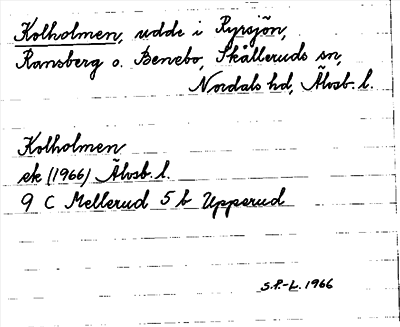 Kolholmen, udde i Ryrsjön,
Ransberg o. Benebo, Skålleruds sn,
Nordals hd, Älvsb. l.
Kolholmen
ek (1966) Älvsb. l.
9 C Mellerud 5 b Upperud
S.F.-L. 1966